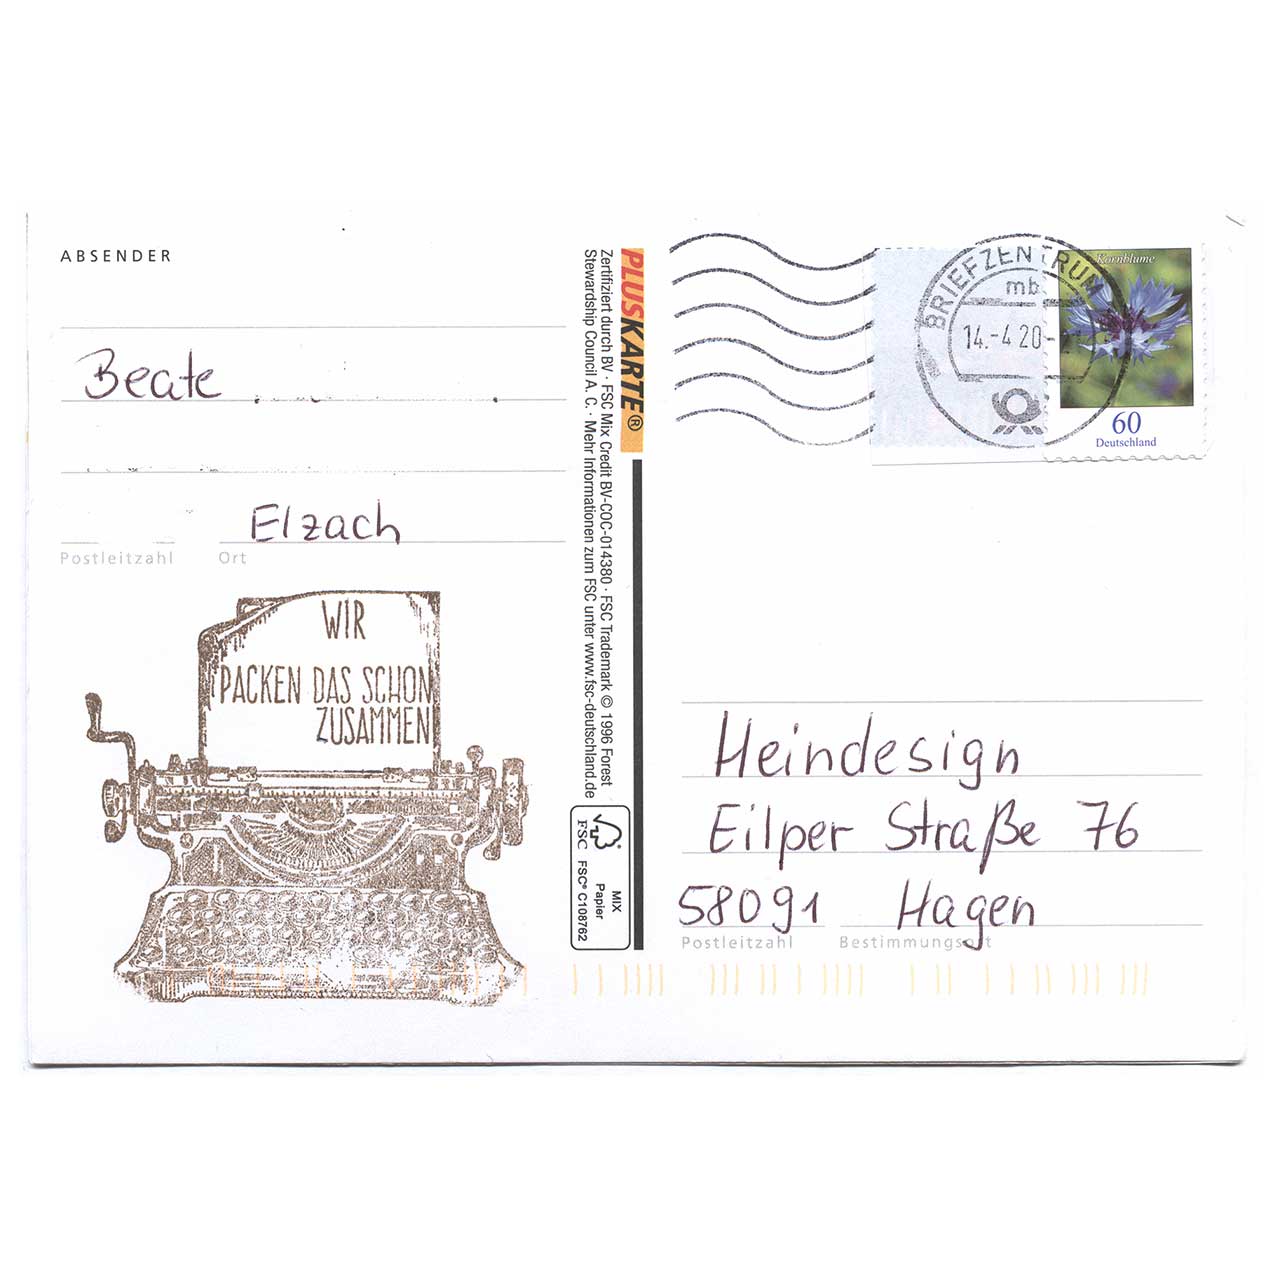 ABSENDER
Beate
Elzach
Postleitzahl Ort
WIR
PACKEN DAS SCHON
ZUSAMMEN
PLUSKARTE®
Zertifiziert durch BV · FSC Mix Credit BV-COC-014380 · FSC Trademark © 1996 Forest
Stewardship Council A. C. · Mehr Informationen zum FSC unter www.fsc-deutschland.de
FSC
MIX
Papier
FSC® C108762
BRIEFZENTRUM
mb
14.-4 20-
Kornblume
60
Deutschland
Heindesign
Eilper Straße 76
58091 Hagen
Postleitzahl Bestimmungsort